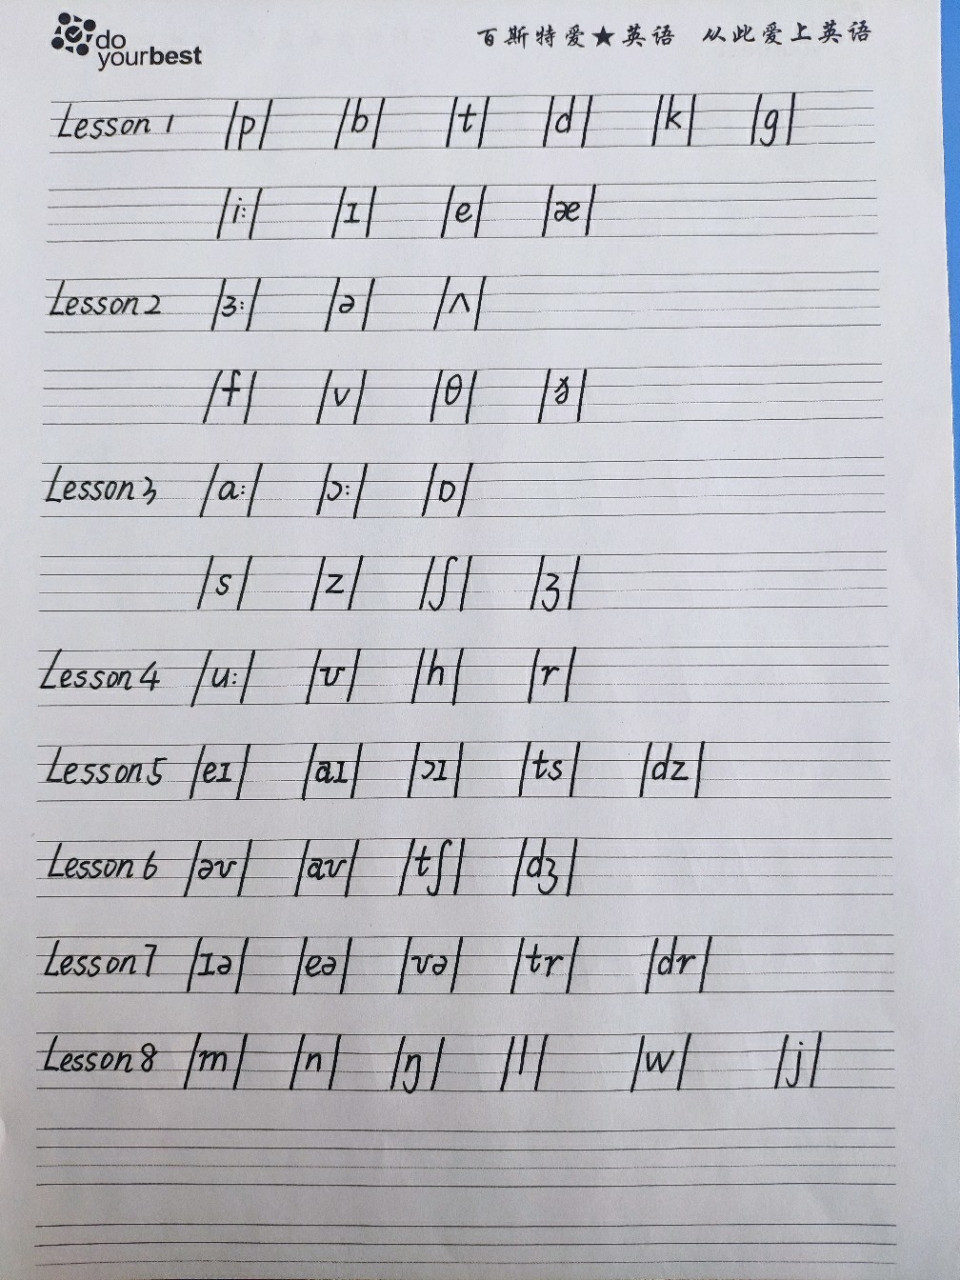 do
yourbest
百斯特爱★英语 从此爱上英语
Lesson 1 /p/ /b/ /t/ /d/ /k/ /g/
/i:/ /ɪ/ /e/ /æ/
Lesson 2 /ɜ:/ /ə/ /ʌ/
/f/ /v/ /θ/ /ð/
Lesson 3 /a:/ /ɔ:/ /ɒ/
/s/ /z/ /ʃ/ /ʒ/
Lesson 4 /u:/ /ʊ/ /h/ /r/
Lesson 5 /eɪ/ /aɪ/ /ɔɪ/ /ts/ /dz/
Lesson 6 /əʊ/ /aʊ/ /tʃ/ /dʒ/
Lesson 7 /ɪə/ /eə/ /ʊə/ /tr/ /dr/
Lesson 8 /m/ /n/ /ŋ/ /l/ /w/ /j/